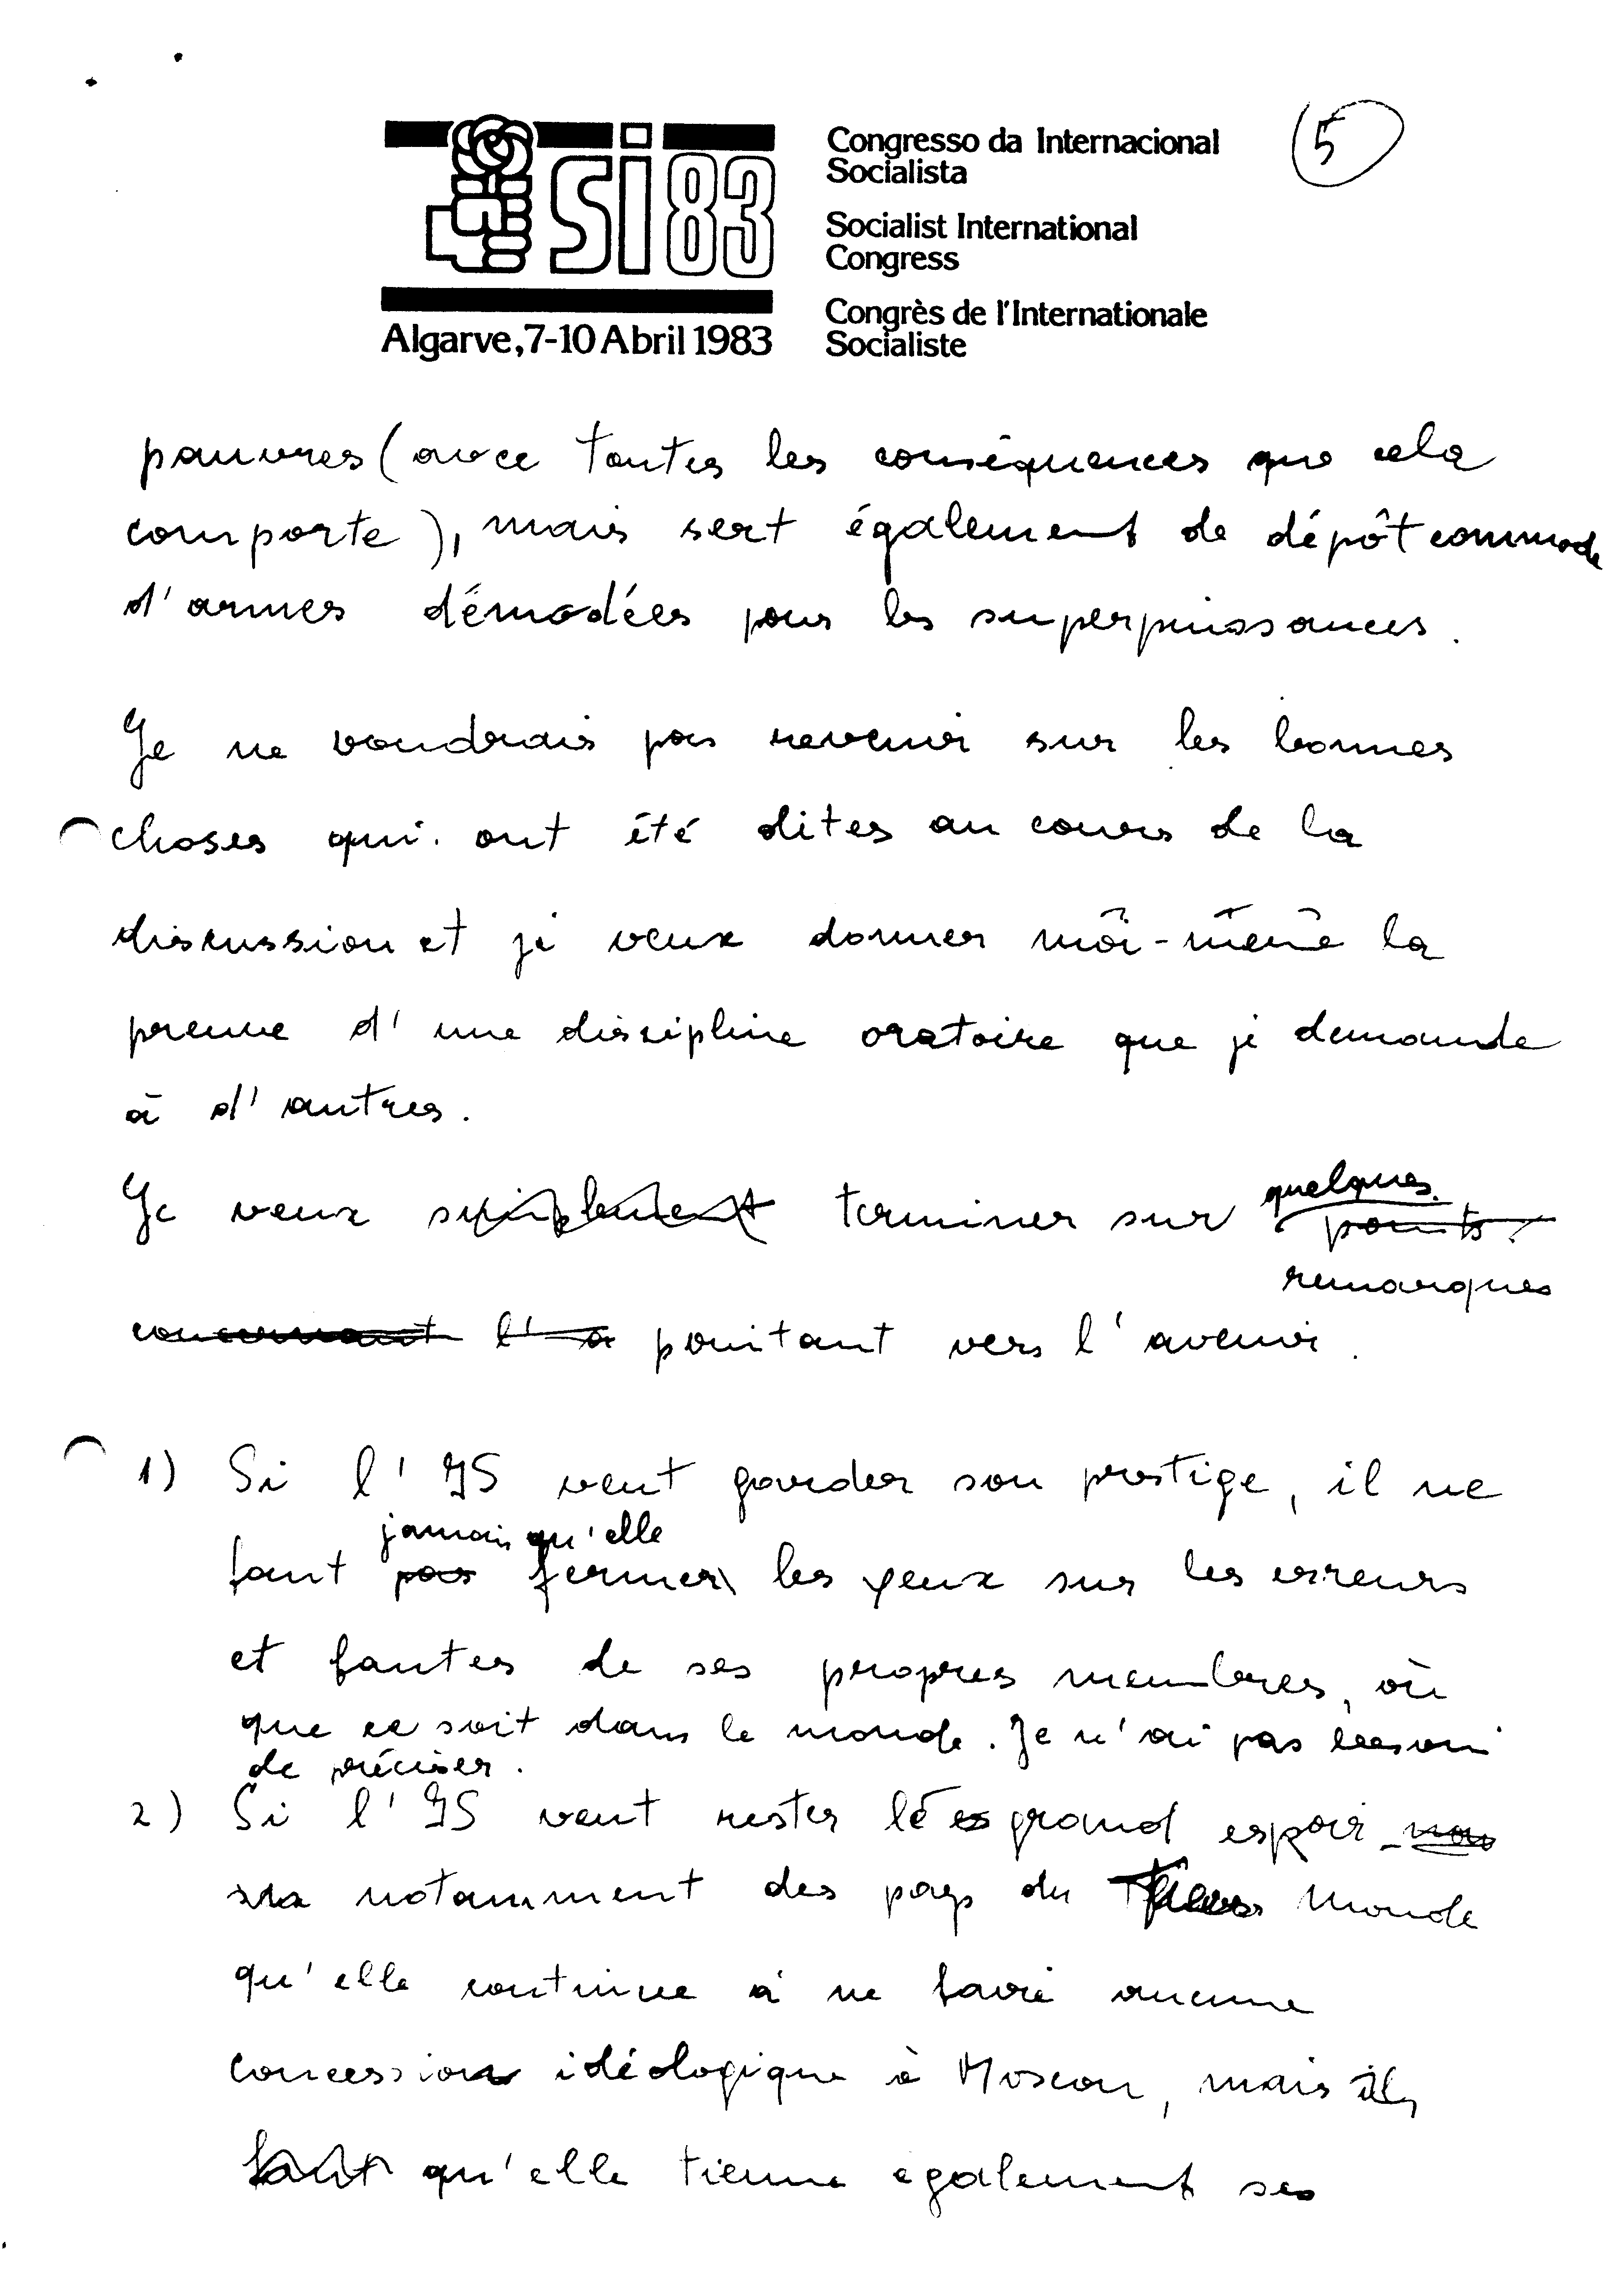 SI 83
Algarve, 7-10 Abril 1983
Congresso da Internacional
Socialista
Socialist International
Congress
Congrès de l'Internationale
Socialiste
5
pauvres (avec toutes les conséquences que cela
comporte), mais sert également de dépôt commode
d'armes démodées pour les superpuissances.
Je ne voudrais pas revenir sur les bonnes
choses qui ont été dites au cours de la
discussion et je veux donner moi-même la
preuve d'une discipline oratoire que je demande
à d'autres.
Je veux simplement terminer sur quelques points
remarques
concernant l'a pointant vers l'avenir.
1) Si l'IS veut garder son prestige, il ne
jamais qu'elle
faut pas fermer les yeux sur les erreurs
et fautes de ses propres membres, où
que ce soit dans le monde. Je n'ai pas besoin
de préciser.
2) Si l'IS veut rester le grand espoir
notamment des pays du Tiers Monde
qu'elle continue à ne faire aucune
concession idéologique à Moscou, mais il
faut qu'elle tienne egalement ses